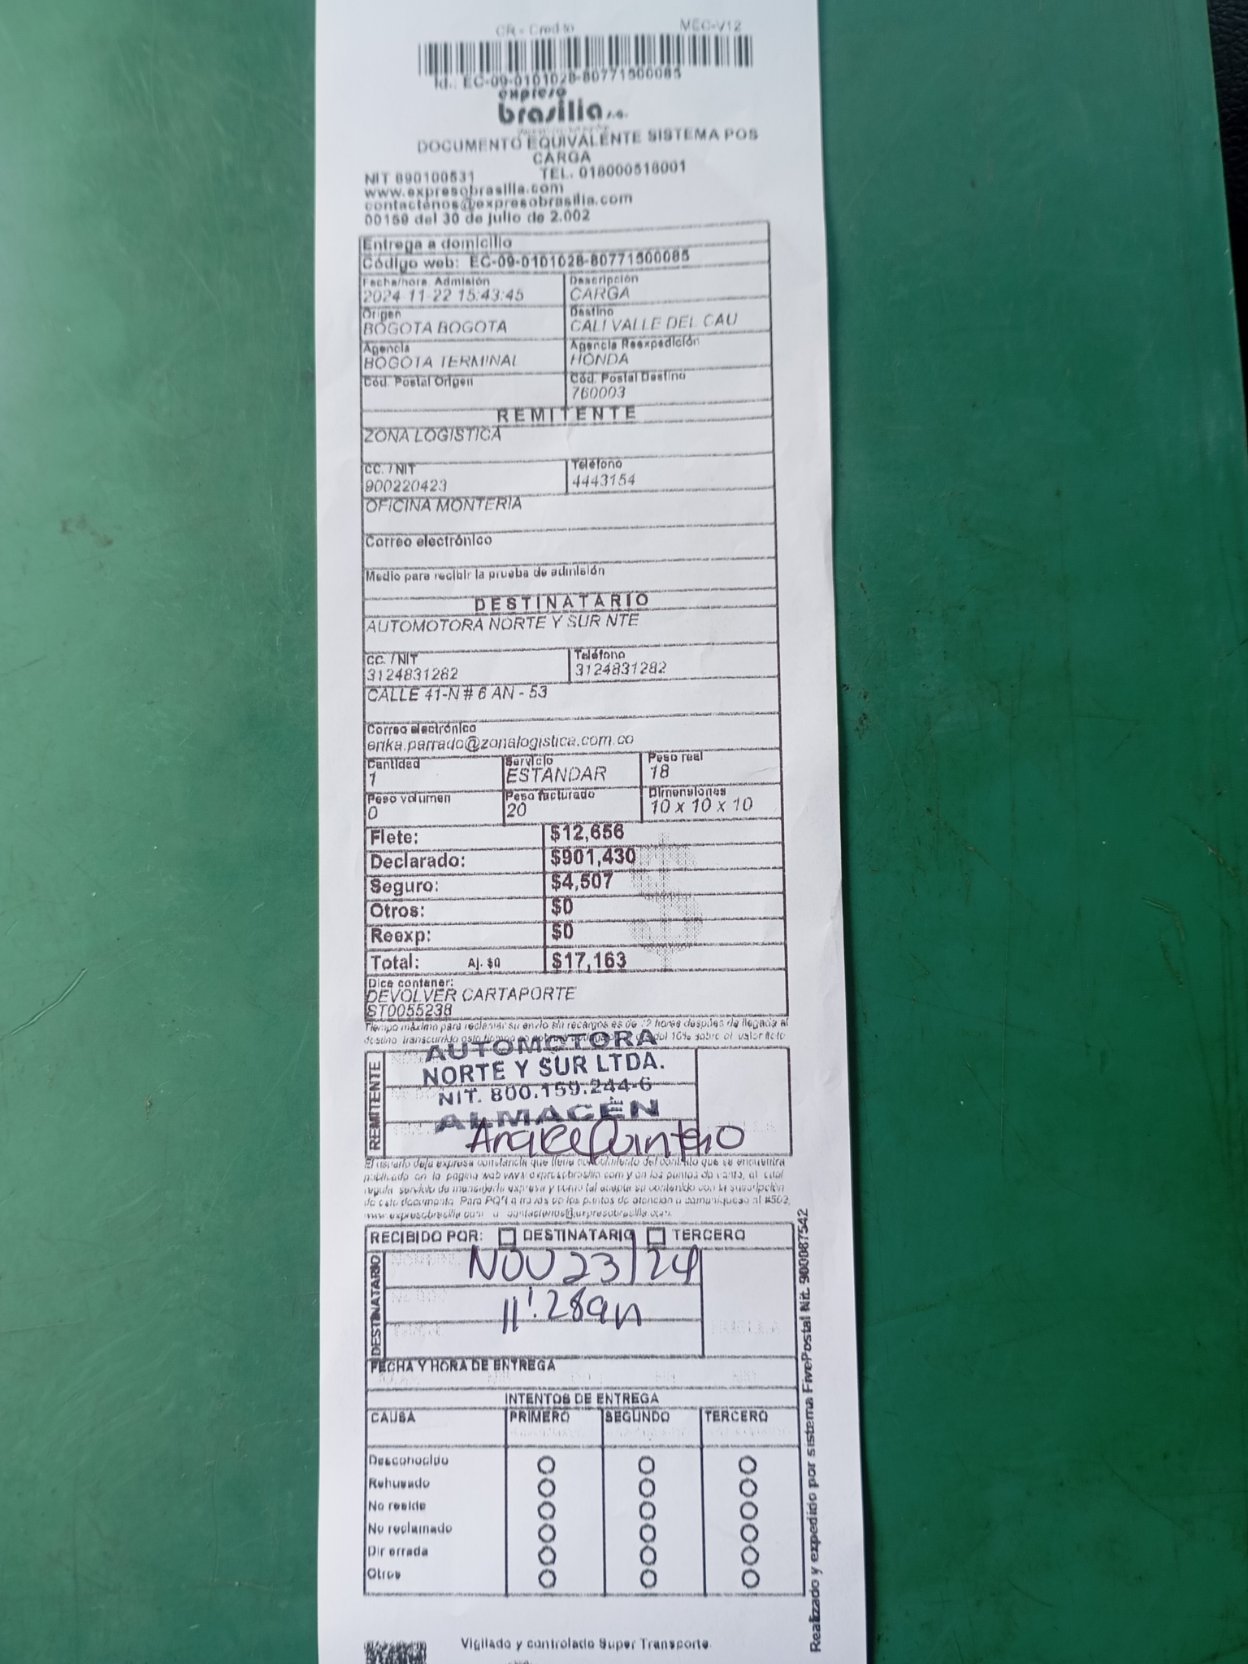 CR - Credito MEC-V12
Id.: EC-09-0101028-80771500085
expreso
brasilia s.a.
DOCUMENTO EQUIVALENTE SISTEMA POS
CARGA
NIT 890100531 TEL. 018000518001
www.expresobrasilia.com
contactenos@expresobrasilia.com
00159 del 30 de julio de 2.002
Entrega a domicilio
Código web: EC-09-0101028-80771500085
Fecha/hora Admisión Descripción
2024-11-22 15:43:45 CARGA
Origen Destino
BOGOTA BOGOTA CALI VALLE DEL CAU
Agencia Agencia Reexpedición
BOGOTA TERMINAL HONDA
Cód. Postal Origen Cód. Postal Destino
760003
REMITENTE
ZONA LOGISTICA
CC. / NIT Teléfono
900220423 4443154
OFICINA MONTERIA
Correo electrónico
Medio para recibir la prueba de admisión
DESTINATARIO
AUTOMOTORA NORTE Y SUR NTE
CC. / NIT Teléfono
3124831282 3124831282
CALLE 41-N # 6 AN - 53
Correo electrónico
erika.parrado@zonalogistica.com.co
Cantidad Servicio Peso real
1 ESTANDAR 18
Peso volumen Peso facturado Dimensiones
0 20 10 x 10 x 10
Flete: $12,656
Declarado: $901,430
Seguro: $4,507
Otros: $0
Reexp: $0
Total: Aj. $0 $17,163
Dice contener:
DEVOLVER CARTAPORTE
ST0055238
Tiempo máximo para reclamar su envío sin recargos es de 72 horas después de llegada al
destino transcurrido este tiempo 10% sobre el valor flete
AUTOMOTORA
NORTE Y SUR LTDA.
NIT. 800.159.244-6
ALMACÉN
REMITENTE
Quintero
El usuario deja expresa constancia que tiene conocimiento del contrato que se encuentra
publicado en la página web www.expresobrasilia.com y en los puntos de venta, el cual
regula servicio de mensajería expresa y como tal acepta su contenido con la suscripción
de este documento. Para PQR a través de los puntos de atención o comuníquese al #502,
www.expresobrasilia.com o contactenos@expresobrasilia.com.
RECIBIDO POR: DESTINATARIO TERCERO
DESTINATARIO
NOV 23/24
11:28am
FECHA Y HORA DE ENTREGA
INTENTOS DE ENTREGA
CAUSA PRIMERO SEGUNDO TERCERO
Desconocido
Rehusado
No reside
No reclamado
Dir errada
Otros
Realizado y expedido por sistema FivePostal Nit. 900087542
Vigilado y controlado Super Transporte